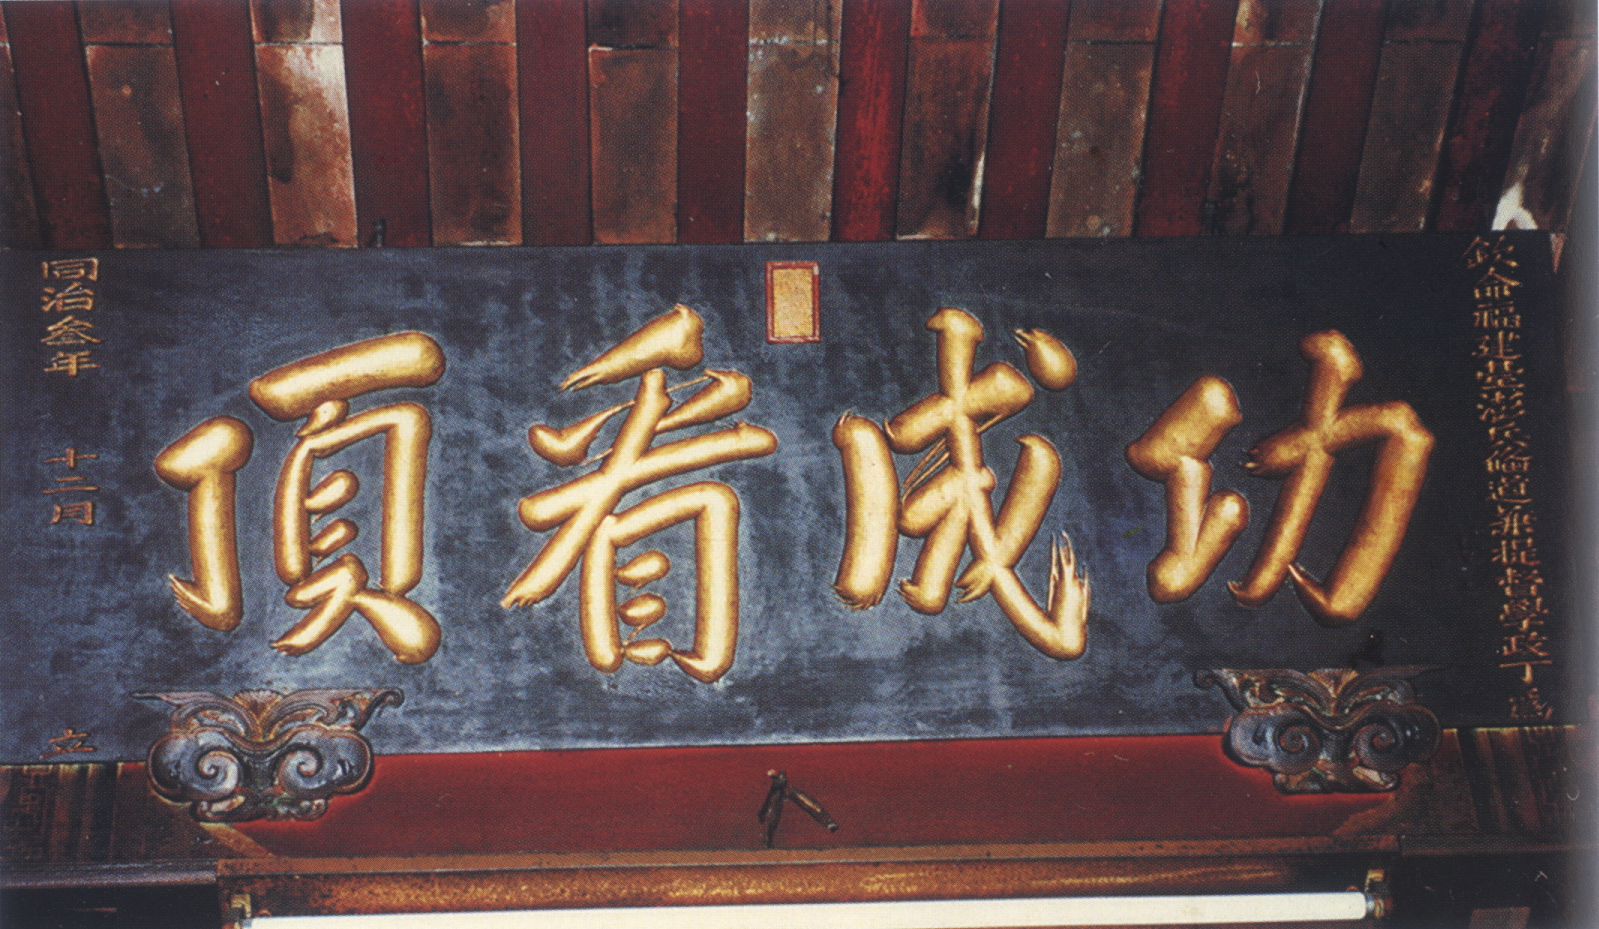 欽命福建臺澎兵備道兼提督學政丁為
功成看頂
同治叁年 十二月 立